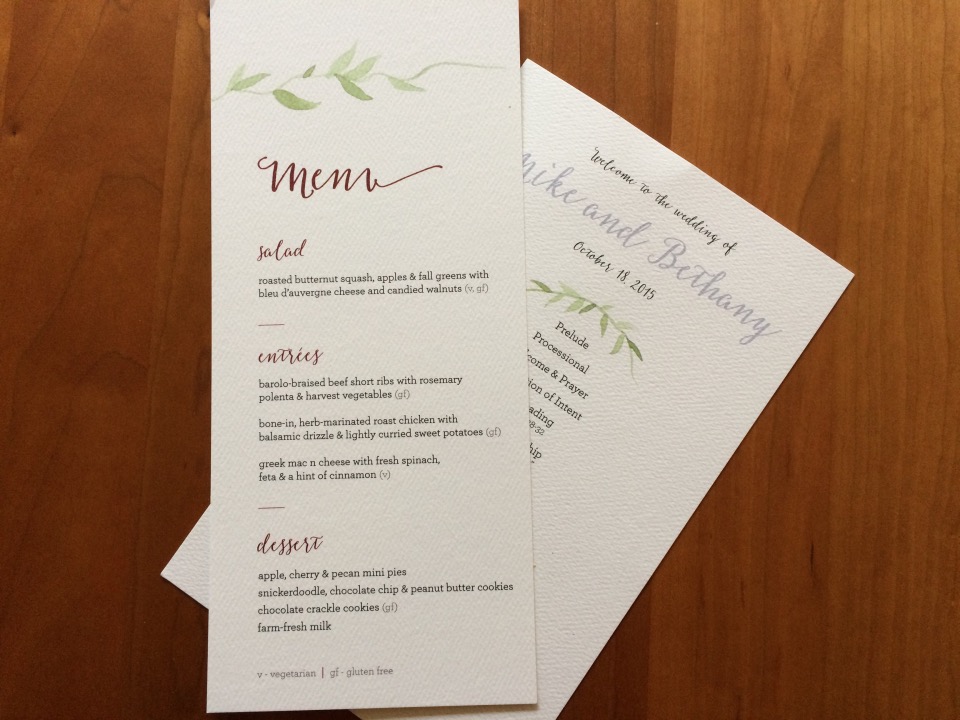 Menu
salad
roasted butternut squash, apples & fall greens with
bleu d'auvergne cheese and candied walnuts (v, gf)
entrées
barolo-braised beef short ribs with rosemary
polenta & harvest vegetables (gf)
bone-in, herb-marinated roast chicken with
balsamic drizzle & lightly curried sweet potatoes (gf)
greek mac n cheese with fresh spinach,
feta & a hint of cinnamon (v)
dessert
apple, cherry & pecan mini pies
snickerdoodle, chocolate chip & peanut butter cookies
chocolate crackle cookies (gf)
farm-fresh milk
v - vegetarian | gf - gluten free
Welcome to the wedding of
Mike and Bethany
October 18, 2015
Prelude
Processional
& Prayer
of Intent